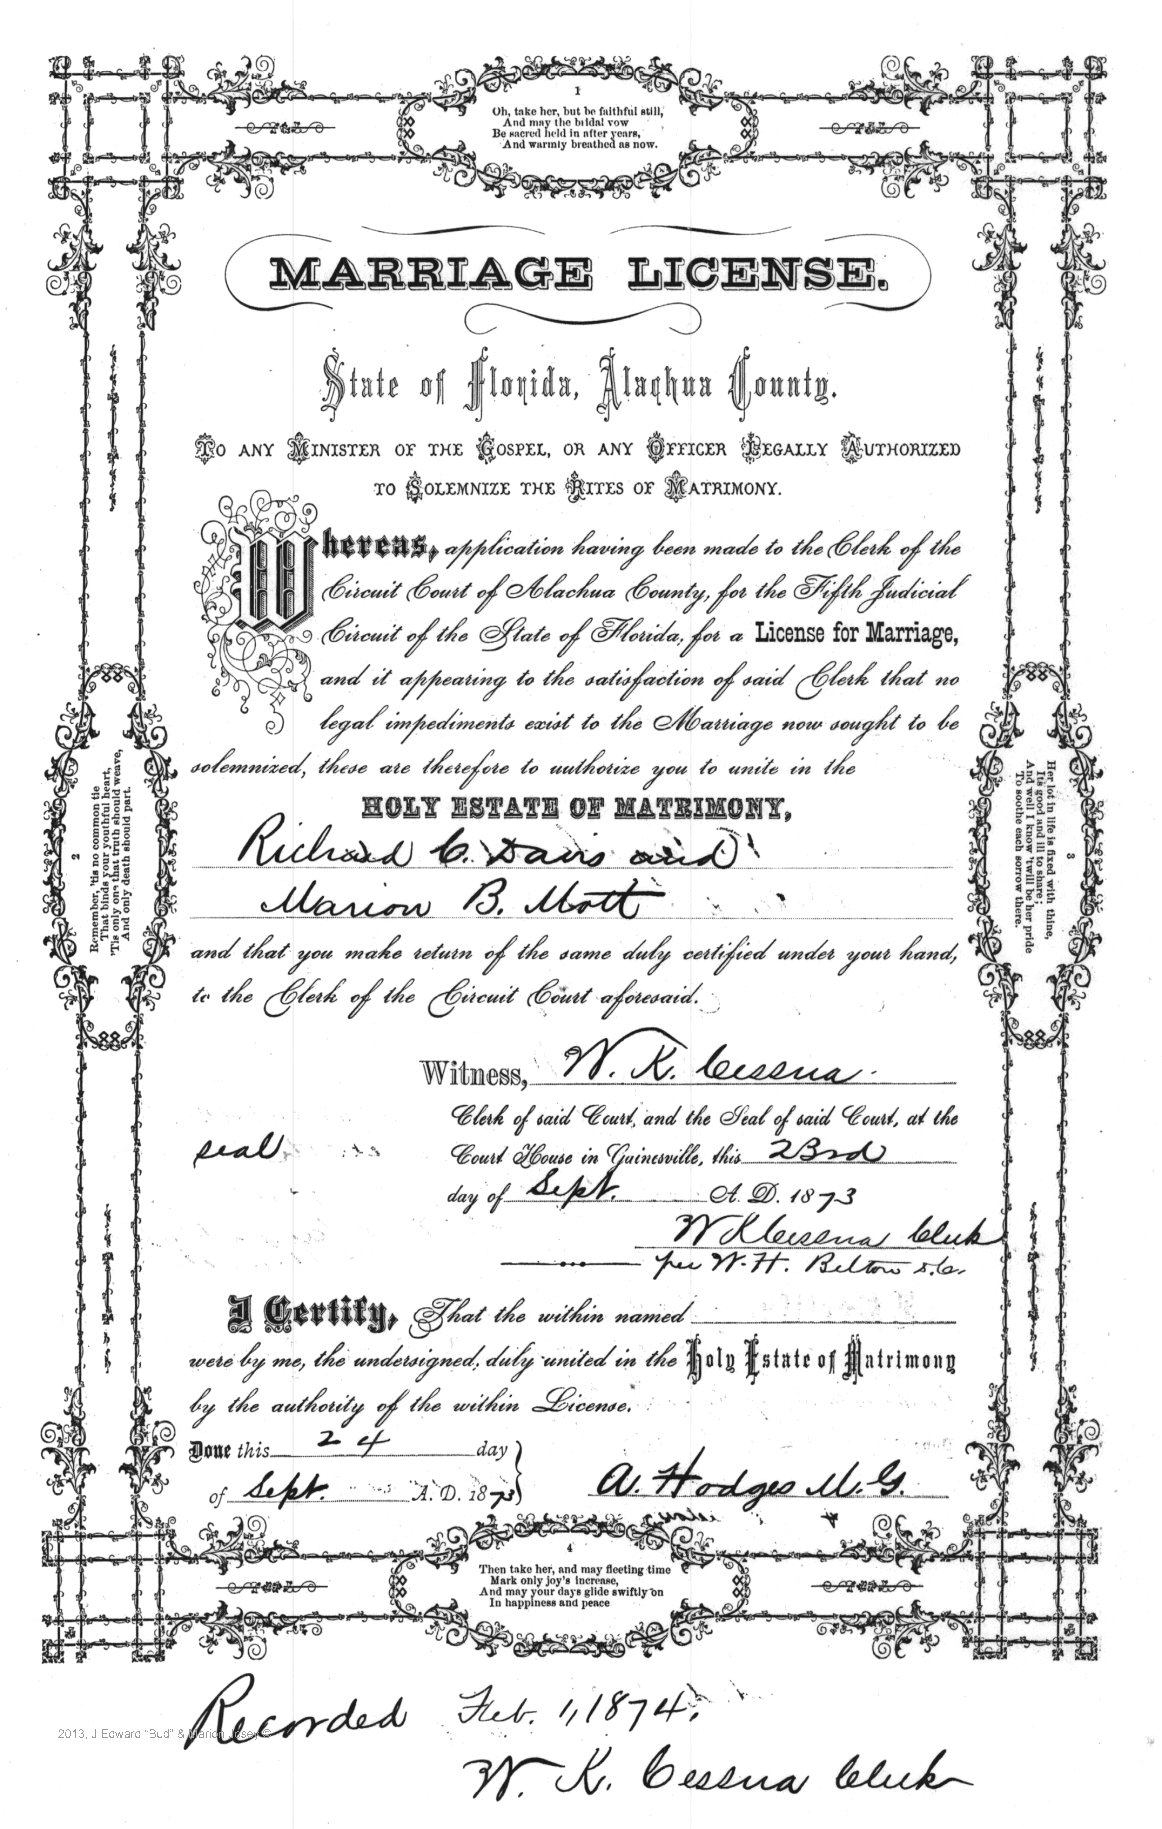 1
Oh, take her, but be faithful still,
And may the bridal vow
Be sacred held in after years,
And warmly breathed as now.
MARRIAGE LICENSE.
State of Florida, Alachua County.
To any Minister of the Gospel, or any Officer Legally Authorized
to Solemnize the Rites of Matrimony.
Whereas, application having been made to the Clerk of the
Circuit Court of Alachua County, for the Fifth Judicial
Circuit of the State of Florida, for a License for Marriage,
and it appearing to the satisfaction of said Clerk that no
legal impediments exist to the Marriage now sought to be
solemnized, these are therefore to authorize you to unite in the
HOLY ESTATE OF MATRIMONY,
Richard C. Davis and
Marion B. Mott
and that you make return of the same duly certified under your hand,
to the Clerk of the Circuit Court aforesaid.
2
Remember, 'tis no common tie
That binds your youthful heart,
'Tis only one that truth should weave,
And only death should part.
3
Her lot in life is fixed with thine,
Its good and ill to share;
And well I know 'twill be her pride
To soothe each sorrow there.
Witness, W. K. Cessna
Clerk of said Court, and the Seal of said Court, at the
seal
Court House in Gainesville, this 23rd
day of Sept. A. D. 1873
W K Cessna Clerk
per W. H. Belton D.C.
I Certify, That the within named
were by me, the undersigned, duly united in the Holy Estate of Matrimony
by the authority of the within License.
Done this 24 day
of Sept. A. D. 1873
A. Hodges M. G.
4
Then take her, and may fleeting time
Mark only joy's increase,
And may your days glide swiftly on
In happiness and peace
Recorded Feb. 1, 1874.
2013, J Edward "Bud" & Marion Josey ©
W. K. Cessna Clerk